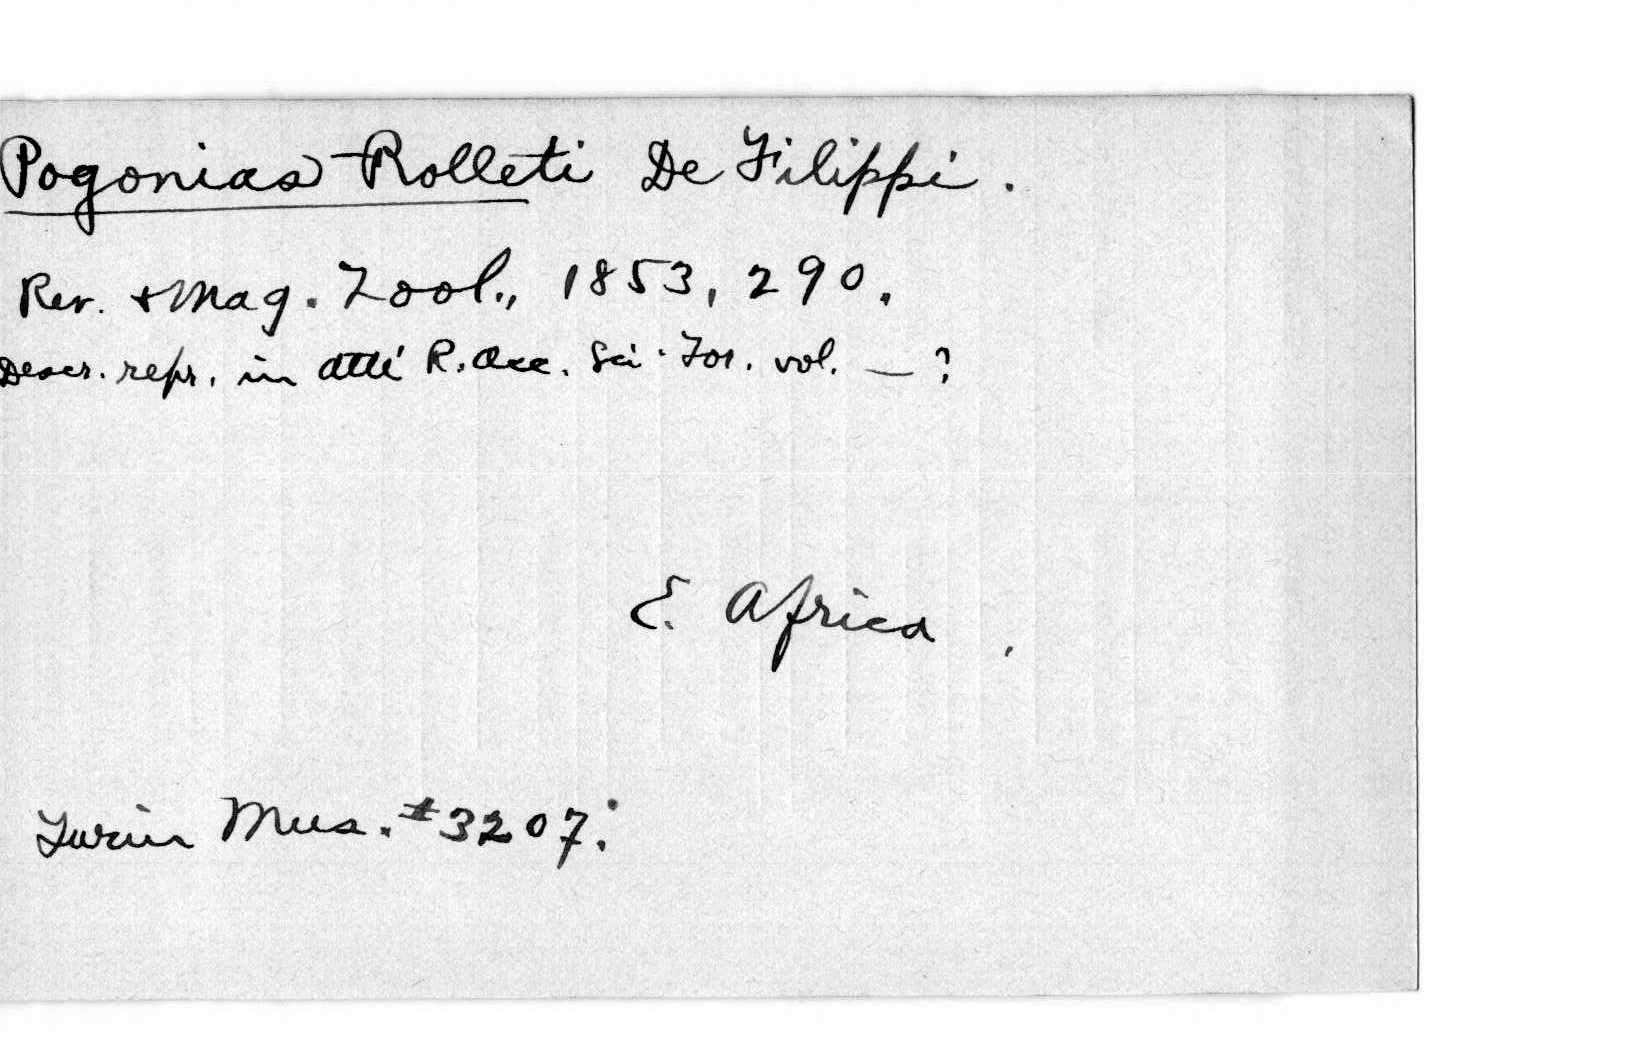 Pogonias Rolleti De Filippi.
Rev. + Mag. Zool., 1853, 290.
Descr. repr. in Atti R. Acc. Sci. Tor. vol. — ?
E. Africa
Turin Mus. #3207.